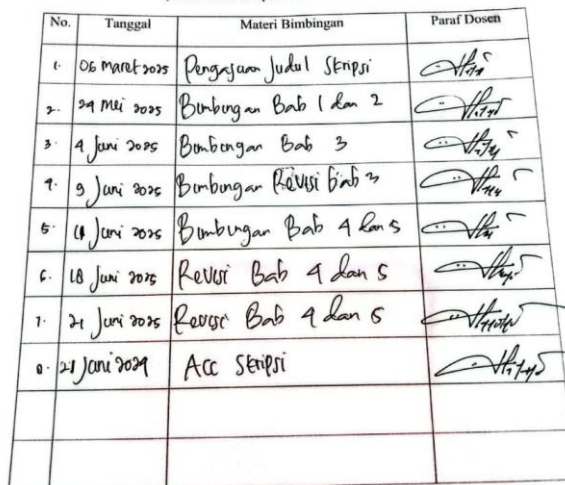 No. Tanggal Materi Bimbingan Paraf Dosen
1. 06 Maret 2025 Pengajuan Judul Skripsi
2. 29 Mei 2025 Bimbingan Bab 1 dan 2
3. 4 Juni 2025 Bimbingan Bab 3
4. 9 Juni 2025 Bimbingan Revisi bab 3
5. Juni 2025 Bimbingan Bab 4 dan 5
6. 18 Juni 2025 Revisi Bab 4 dan 5
7. 21 Juni 2025 Revisi Bab 4 dan 5
8. Juni 2029 Acc Skripsi